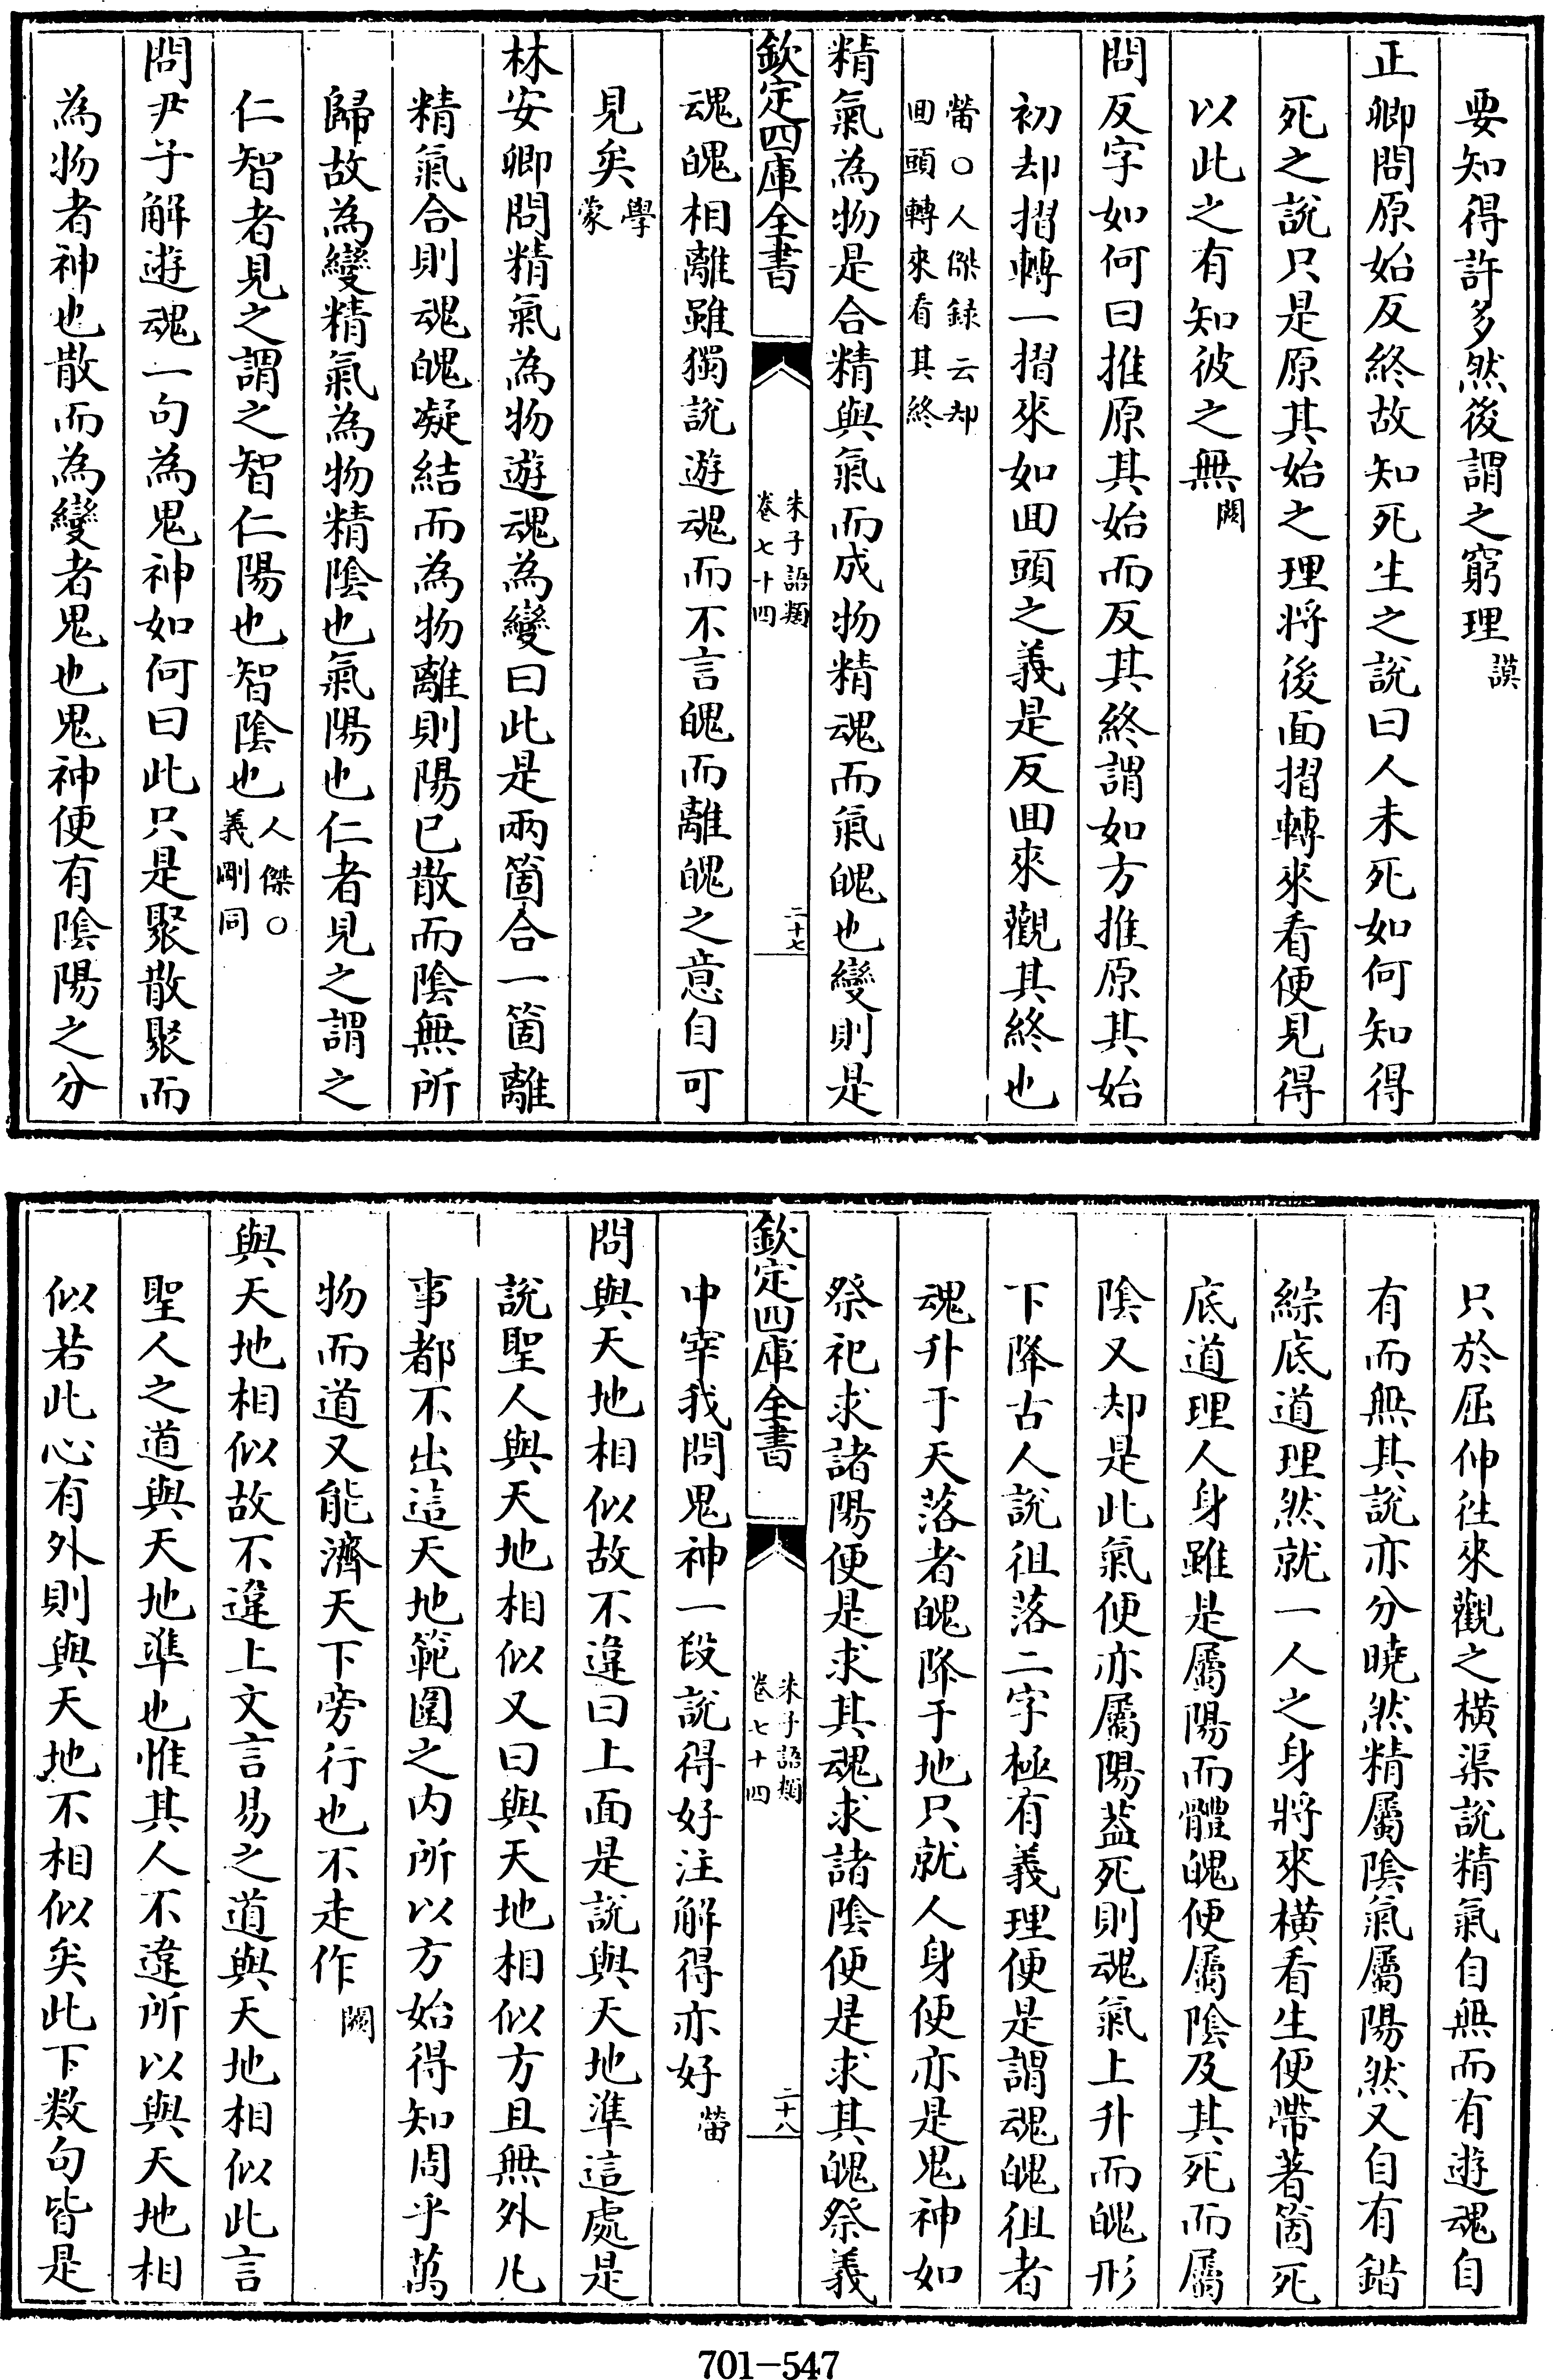 要知得許多然後謂之窮理謨
正卿問原始反終故知死生之說曰人未死如何知得
死之說只是原其始之理將後面摺轉來看便見得
以此之有知彼之無闕
問反字如何曰推原其始而反其終謂如方推原其始
初却摺轉一摺來如回頭之義是反回來觀其終也
㽦○人傑録云却
回頭轉來看其終
精氣為物是合精與氣而成物精魂而氣魄也變則是
欽定四庫全書
朱子語類
卷七十四
二十七
魂魄相離雖獨說遊魂而不言魄而離魄之意自可
見矣學
蒙
林安卿問精氣為物遊魂為變曰此是兩箇合一箇離
精氣合則魂魄凝結而為物離則陽已散而陰無所
歸故為變精氣為物精陰也氣陽也仁者見之謂之
仁智者見之謂之智仁陽也智陰也人傑○
義剛同
問尹子解遊魂一句為鬼神如何曰此只是聚散聚而
為物者神也散而為變者鬼也鬼神便有陰陽之分
只於屈伸往來觀之橫渠說精氣自無而有遊魂自
有而無其說亦分曉然精屬陰氣屬陽然又自有錯
綜底道理然就一人之身將來橫看生便帶著箇死
底道理人身雖是屬陽而體魄便屬陰及其死而屬
陰又却是此氣便亦屬陽蓋死則魂氣上升而魄形
下降古人說徂落二字極有義理便是謂魂魄徂者
魂升于天落者魄降于地只就人身便亦是鬼神如
祭祀求諸陽便是求其魂求諸陰便是求其魄祭義
欽定四庫全書
朱子語類
卷七十四
二十八
中宰我問鬼神一段說得好注解得亦好㽦
問與天地相似故不違曰上面是說與天地準這處是
說聖人與天地相似又曰與天地相似方且無外凡
事都不出這天地範圍之内所以方始得知周乎萬
物而道又能濟天下旁行也不走作闕
與天地相似故不違上文言易之道與天地相似此言
聖人之道與天地準也惟其人不違所以與天地相
似若此心有外則與天地不相似矣此下數句皆是
701-547